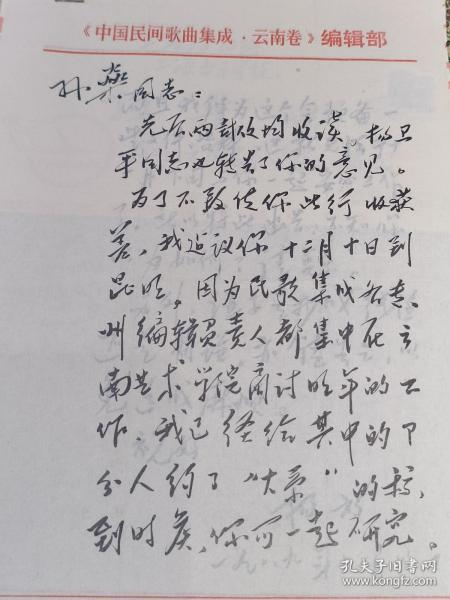 《中国民间歌曲集成·云南卷》编辑部
孙燊同志：
先后两封信均收读。杨旦
平同志也转告了你的意见。
为了不致使你此行收获
差，我建议你十二月十日到
昆明。因为民歌集成各专、
州编辑负责人都集中在云
南艺术学院商讨明年的工
作。我已经给其中的部
分人约了“大系”的稿，
到时候，你可一起研究。
孔夫子旧书网
kongfz.com